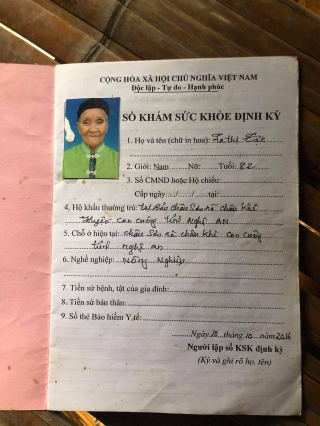 CỘNG HÒA XÃ HỘI CHỦ NGHĨA VIỆT NAM
Độc lập - Tự do - Hạnh phúc
SỔ KHÁM SỨC KHỎE ĐỊNH KỲ
1. Họ và tên (chữ in hoa):
2. Giới: Nam Nữ Tuổi: 82
3. Số CMND hoặc Hộ chiếu:
Cấp ngày / / tại:
4. Hộ khẩu thường trú: châu khê
con cuông tỉnh Nghệ AN
5. Chỗ ở hiện tại: xã châu khê con cuông
tỉnh nghệ an
6. Nghề nghiệp: Nông Nghiệp
7. Tiền sử bệnh, tật của gia đình:
8. Tiền sử bản thân:
9. Số thẻ Bảo hiểm Y tế:
Ngày 10 tháng 10 năm 2016
Người lập sổ KSK định kỳ
(Ký và ghi rõ họ, tên)